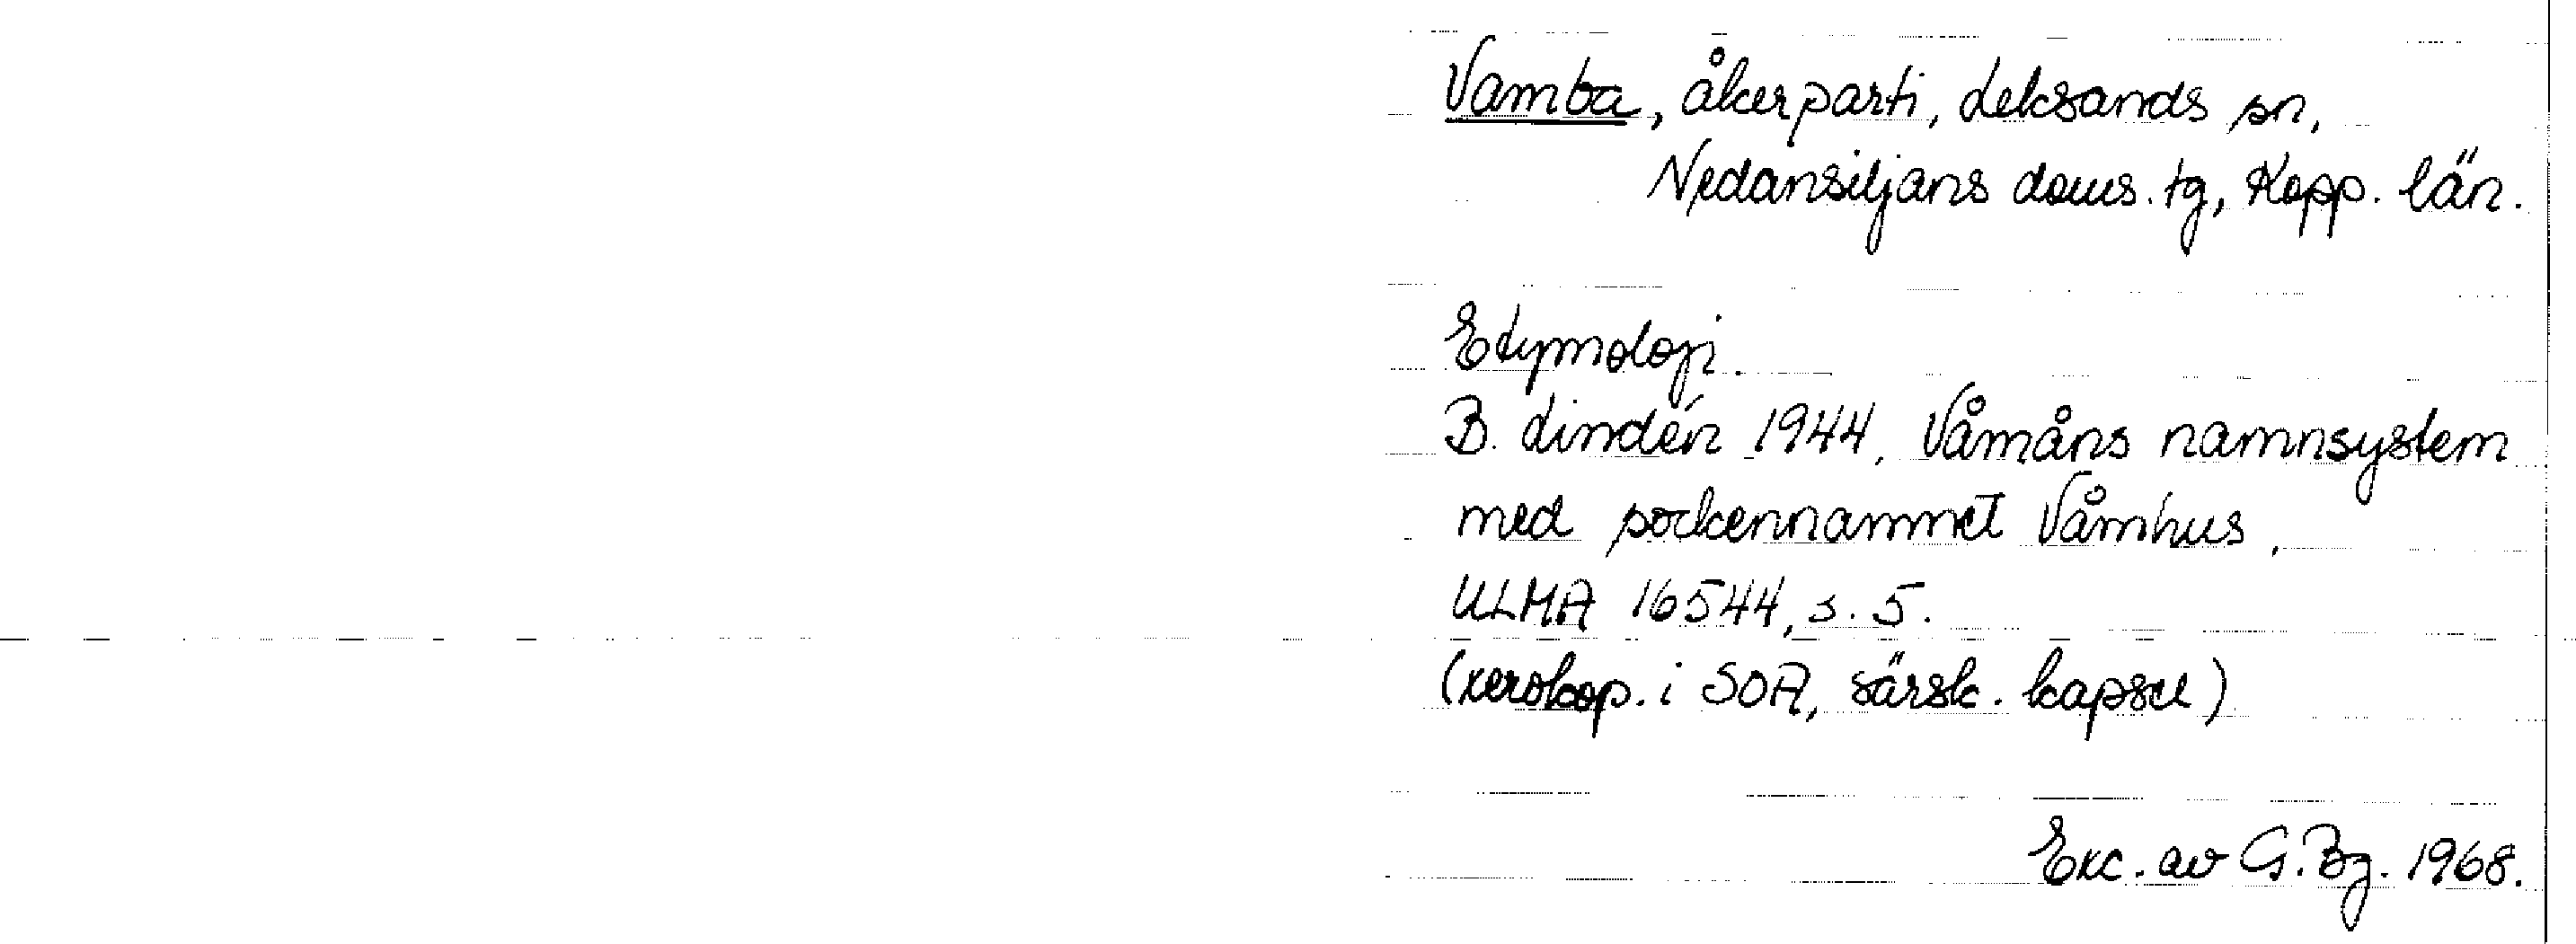 Vamba, åkerparti, Leksands sn,
Nedansiljans doms. tg, Kopp. län.
Etymologi.
B. Lindén 1944, Våmåns namnsystem
med sockennamnet Våmhus,
ULMA 16544, s. 5.
(xerokop. i SOA, särsk. kapsel)
Exc. av G. Bg. 1968.